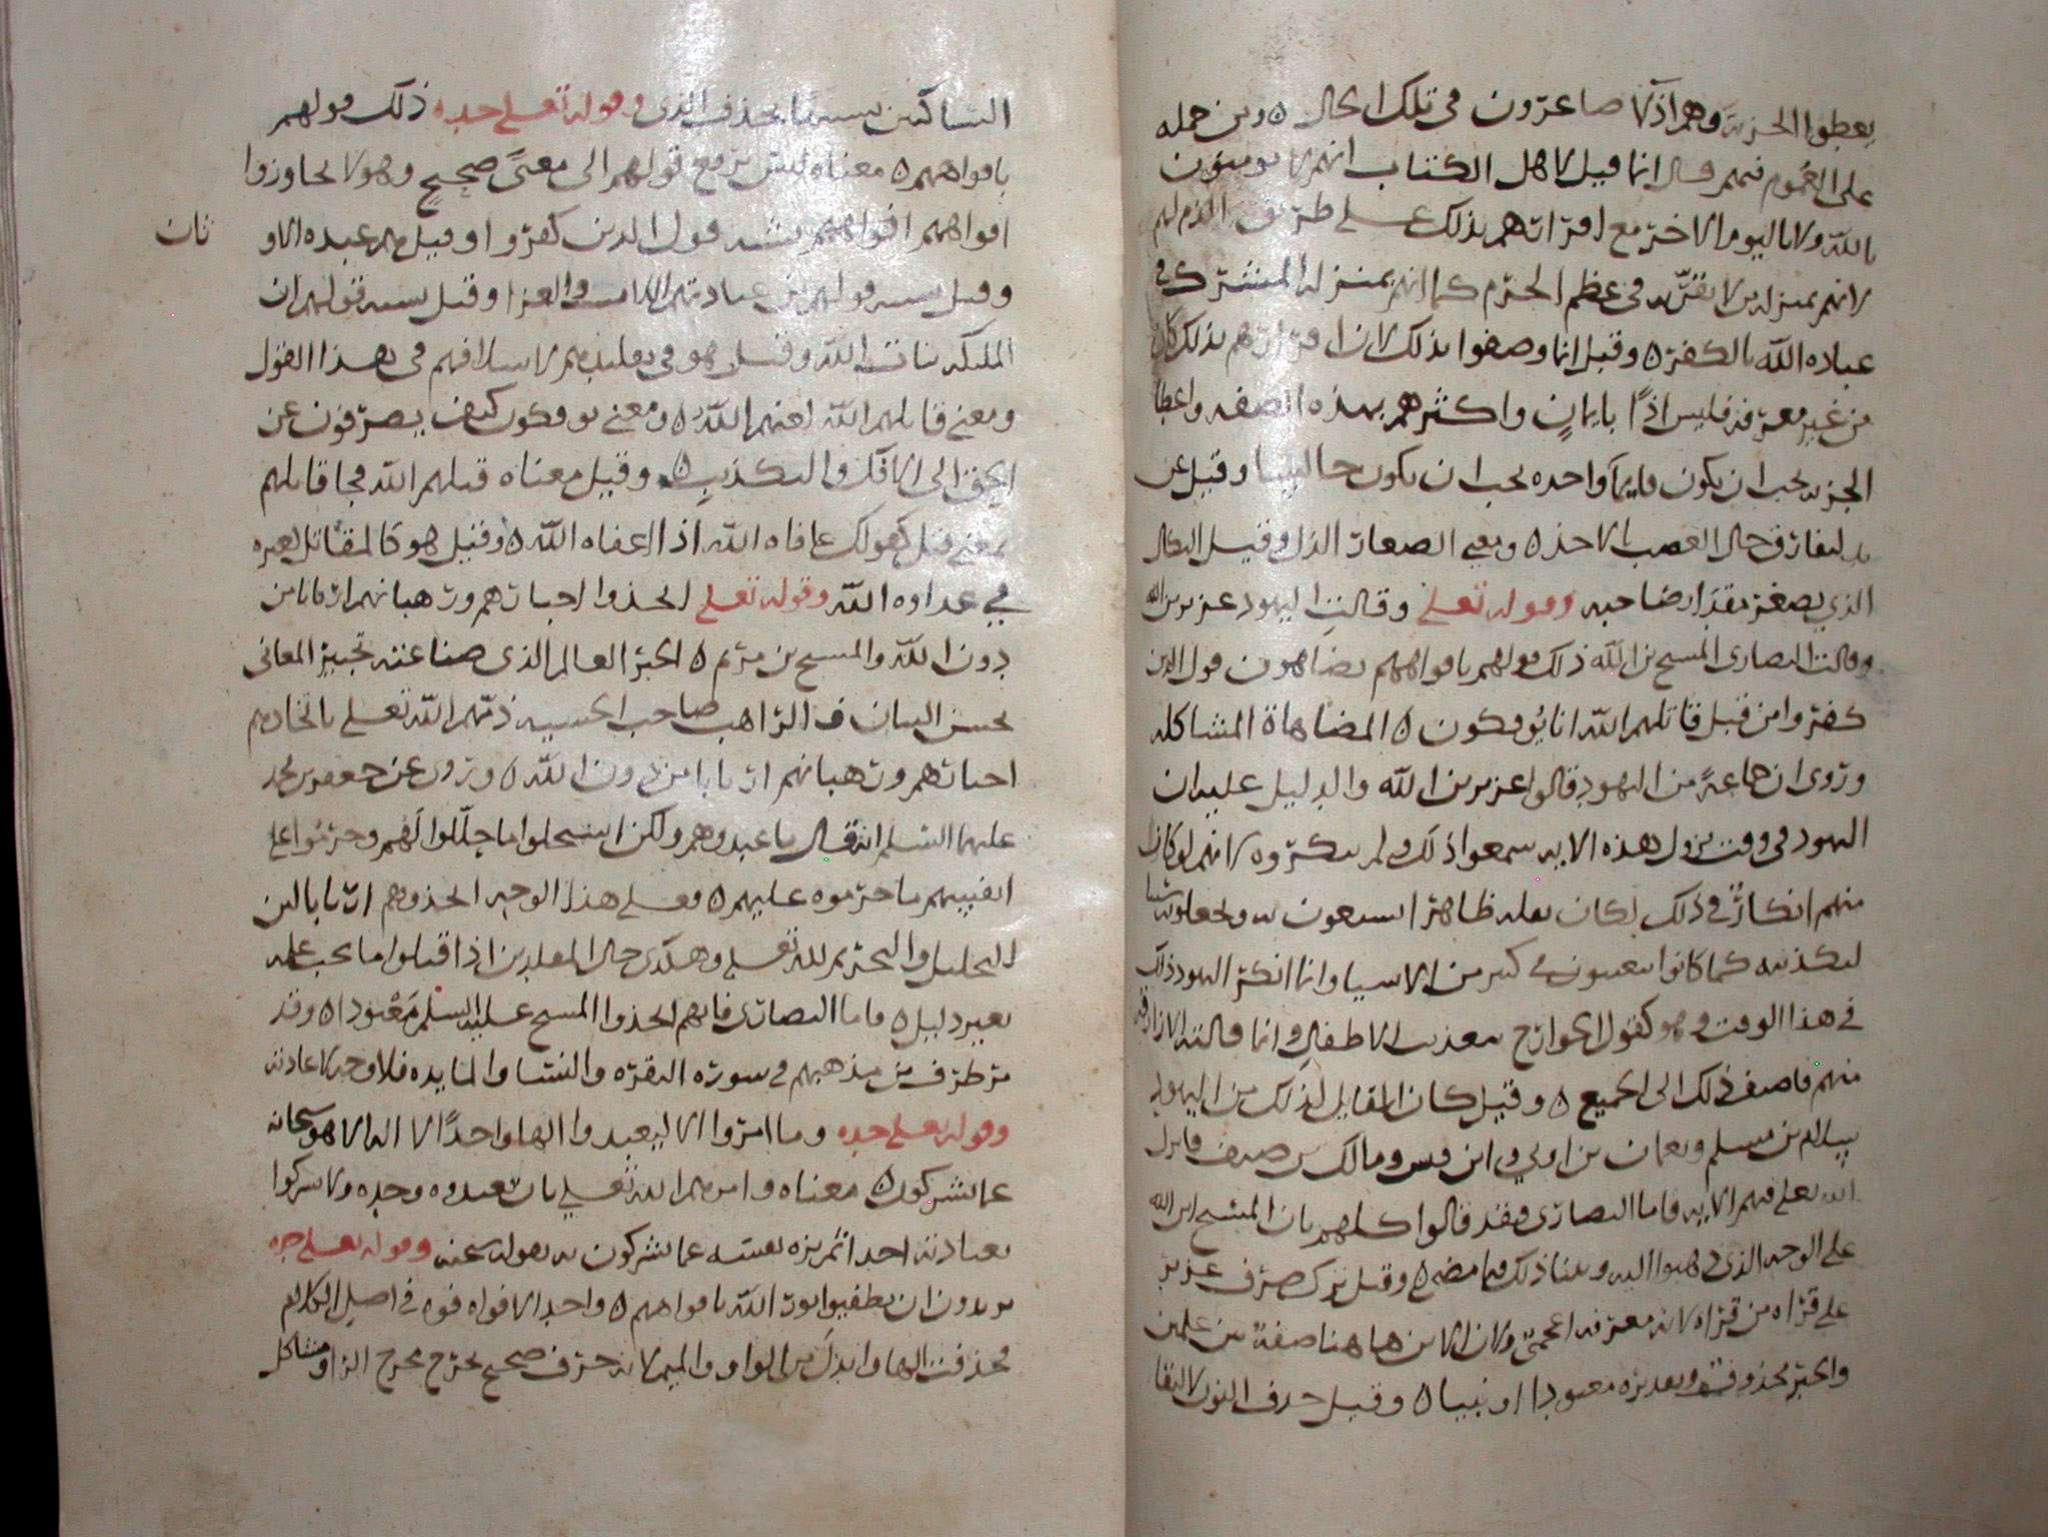 يعطوا الجزية وهم اذلا صاغرون في تلك الحال ٥ ومن حمله
على العموم فيهم قال انما قيل لاهل الكتاب انهم لا يومنون
بالله ولا باليوم الاخر مع اقرارهم بذلك على طريق الذم لهم
لانهم بمنزلة من لا يقر به في عظم الجرم كما انهم بمنزلة المشترك في
عباده الله بالكفر ٥ وقيل انما وصفوا بذلك لان اقرارهم بذلك كان
من غير معرفه فليس اذًا بايمانٍ واكثرهم بهذه الصفه واعطا
الجزيه يجب ان يكون قايمًا واحده يجب ان يكون جالسا وقيل عن
الذي يصغر مقدار صاحبه وقوله تعلى وقالتِ اليهود عزير بن الله
وقالت النصارى المسيح بن الله ذلك قولهم بافواههم يضاهون قول الذين
كفروا من قبل قاتلهم الله انا يُوفكون ٥ المضاهاة المشاكله
وروى ان جماعةً من اليهود قالوا عزير بن الله والدليل عليه ان
اليهود في وقت نزول هذه الايه سمعوا ذلك ولم ينكروه لانهم لو كان
منهم انكارٌ في ذلك لكان نقله ظاهرا
لتكذيبه كما كانوا يتعنتون في كثير من الاشيا وانما انكر اليهود ذلك
في هذا الوقت وهو كقول الخوارج بتعذيب الاطفال وانما قالته الازارقه
منهم فاضيف ذلك الى الجميع ٥ وقيل كان القايل لذلك من اليهود
سلام بن مسلم ونعمان بن اوفي وابن قيس ومالك بن صيف فانزل
الله تعلى فيهم الايه فاما النصارى فقد قالوا كلهم بان المسيح ابن الله
على الوجه الذي ذهبوا اليه وبينا ذلك فيما مضى ٥ وقيل ترك صرف عزير
على قراه من قراه لانه معرفه اعجمي ولان الابن هاهنا صفة بين علمين
والخبر محذوف وتقديره معبودا او نبيا ٥ وقيل حذف النون لالتقا
الساكنين وقوله تعلى جده ذلك قولهم
بافواههم ٥ معناه ليس يرجع قولهم الى معنًى صحيحٍ وهو لا يجاوزوا
افواههم قول الذين كفروا وقيل هم عبده الاو
ثان
وقيل شبه قولهم من عبادتهم اللات والعزا وقيل شبه قولهم ان
الملئكه بنات الله وقيل هو في تقليدهم لاسلافهم في هذا القول
ومعنى قاتلهم الله لعنهم الله ٥ ومعنى يوفكون كيف يصرفون عن
الحق الى الافك والكذب ٥ وقيل معناه قتلهم الله فجا قاتلهم
بمعنى قتل كقولك عافاه الله اذا اعفاه الله ٥ وقيل هو كالمقاتل لغيره
في عداوه الله وقوله تعلى اتخذوا احبارهم ورهبانهم اربابا من
دون الله والمسيح بن مريم ٥ الحبر العالم الذي صناعته تحبير المعانى
بحسن البيان الراهب صاحب الخشيه ذمهم الله تعلى باتخاذهم
احبارهم ورهبانهم اربابا من دون الله ٥ وروى عن جعفر بن محمد
عليهما السلم انه قال ما عبدوهم ولكن استحلوا ما حلّلوا لهم وحرّموا على
انفسهم ما حرّموه عليهم ٥ فعلى هذا الوجه اتخذوهم اربابا لان
التحليل والتحريم لله تعلى وهكذى حال المقلدين اذا قبلوا ما يجب علمه
بغير دليل ٥ فاما النصارى فانهم اتخذوا المسيح عليه السلم مَعْبودا ٥ وقد
مر طرف من مذهبهم في سوره البقره والنسا والمايده فلا وجه لاعادته
وقوله تعلى جده وما امروا الا ليعبدوا الها واحدًا لا اله الا هو سبحانه
عما يشركون ٥ معناه وامرهم الله تعلى بان تعبدوه وحده ولا تشركوا
بعبادته احدا ثم نزه نفسه عما يشركون به بقوله وقوله تعلى جده
يريدون ان يطفيوا نور الله بافواههم ٥ واحد الافواه فوه في اصل الكلام
فحذفت الها وابدل من الواو والميم لانه حرف صحيح مخرج مخرج الواو مشاكل